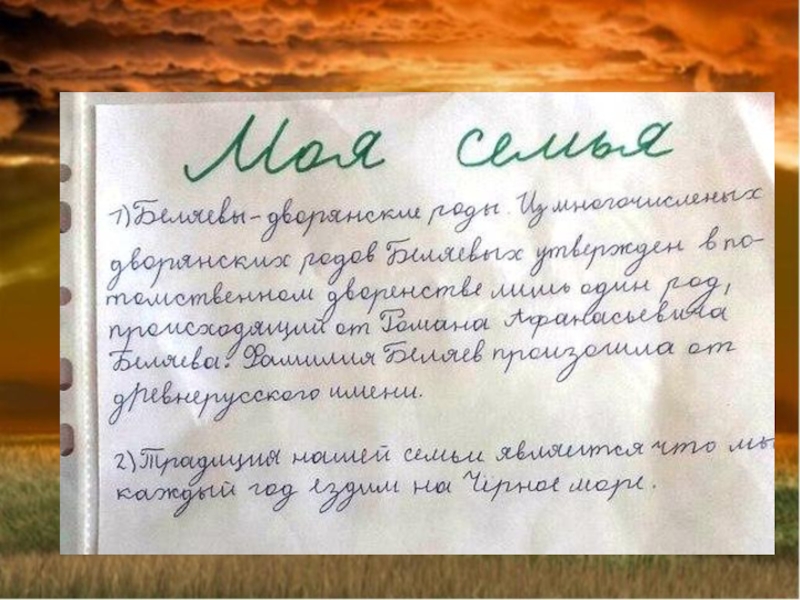 Моя семья
1) Беляевы-дворянские роды. Из многочисленых
дворянских родов Беляевых утвержден в по-
томственном дворенстве лишь один род,
происходящий от Романа Афанасьевича
Беляева. Фамилия Беляев произошла от
древнерусского имени.
2) Традиция нашей семьи является что мы
каждый год ездим на Чёрное море.